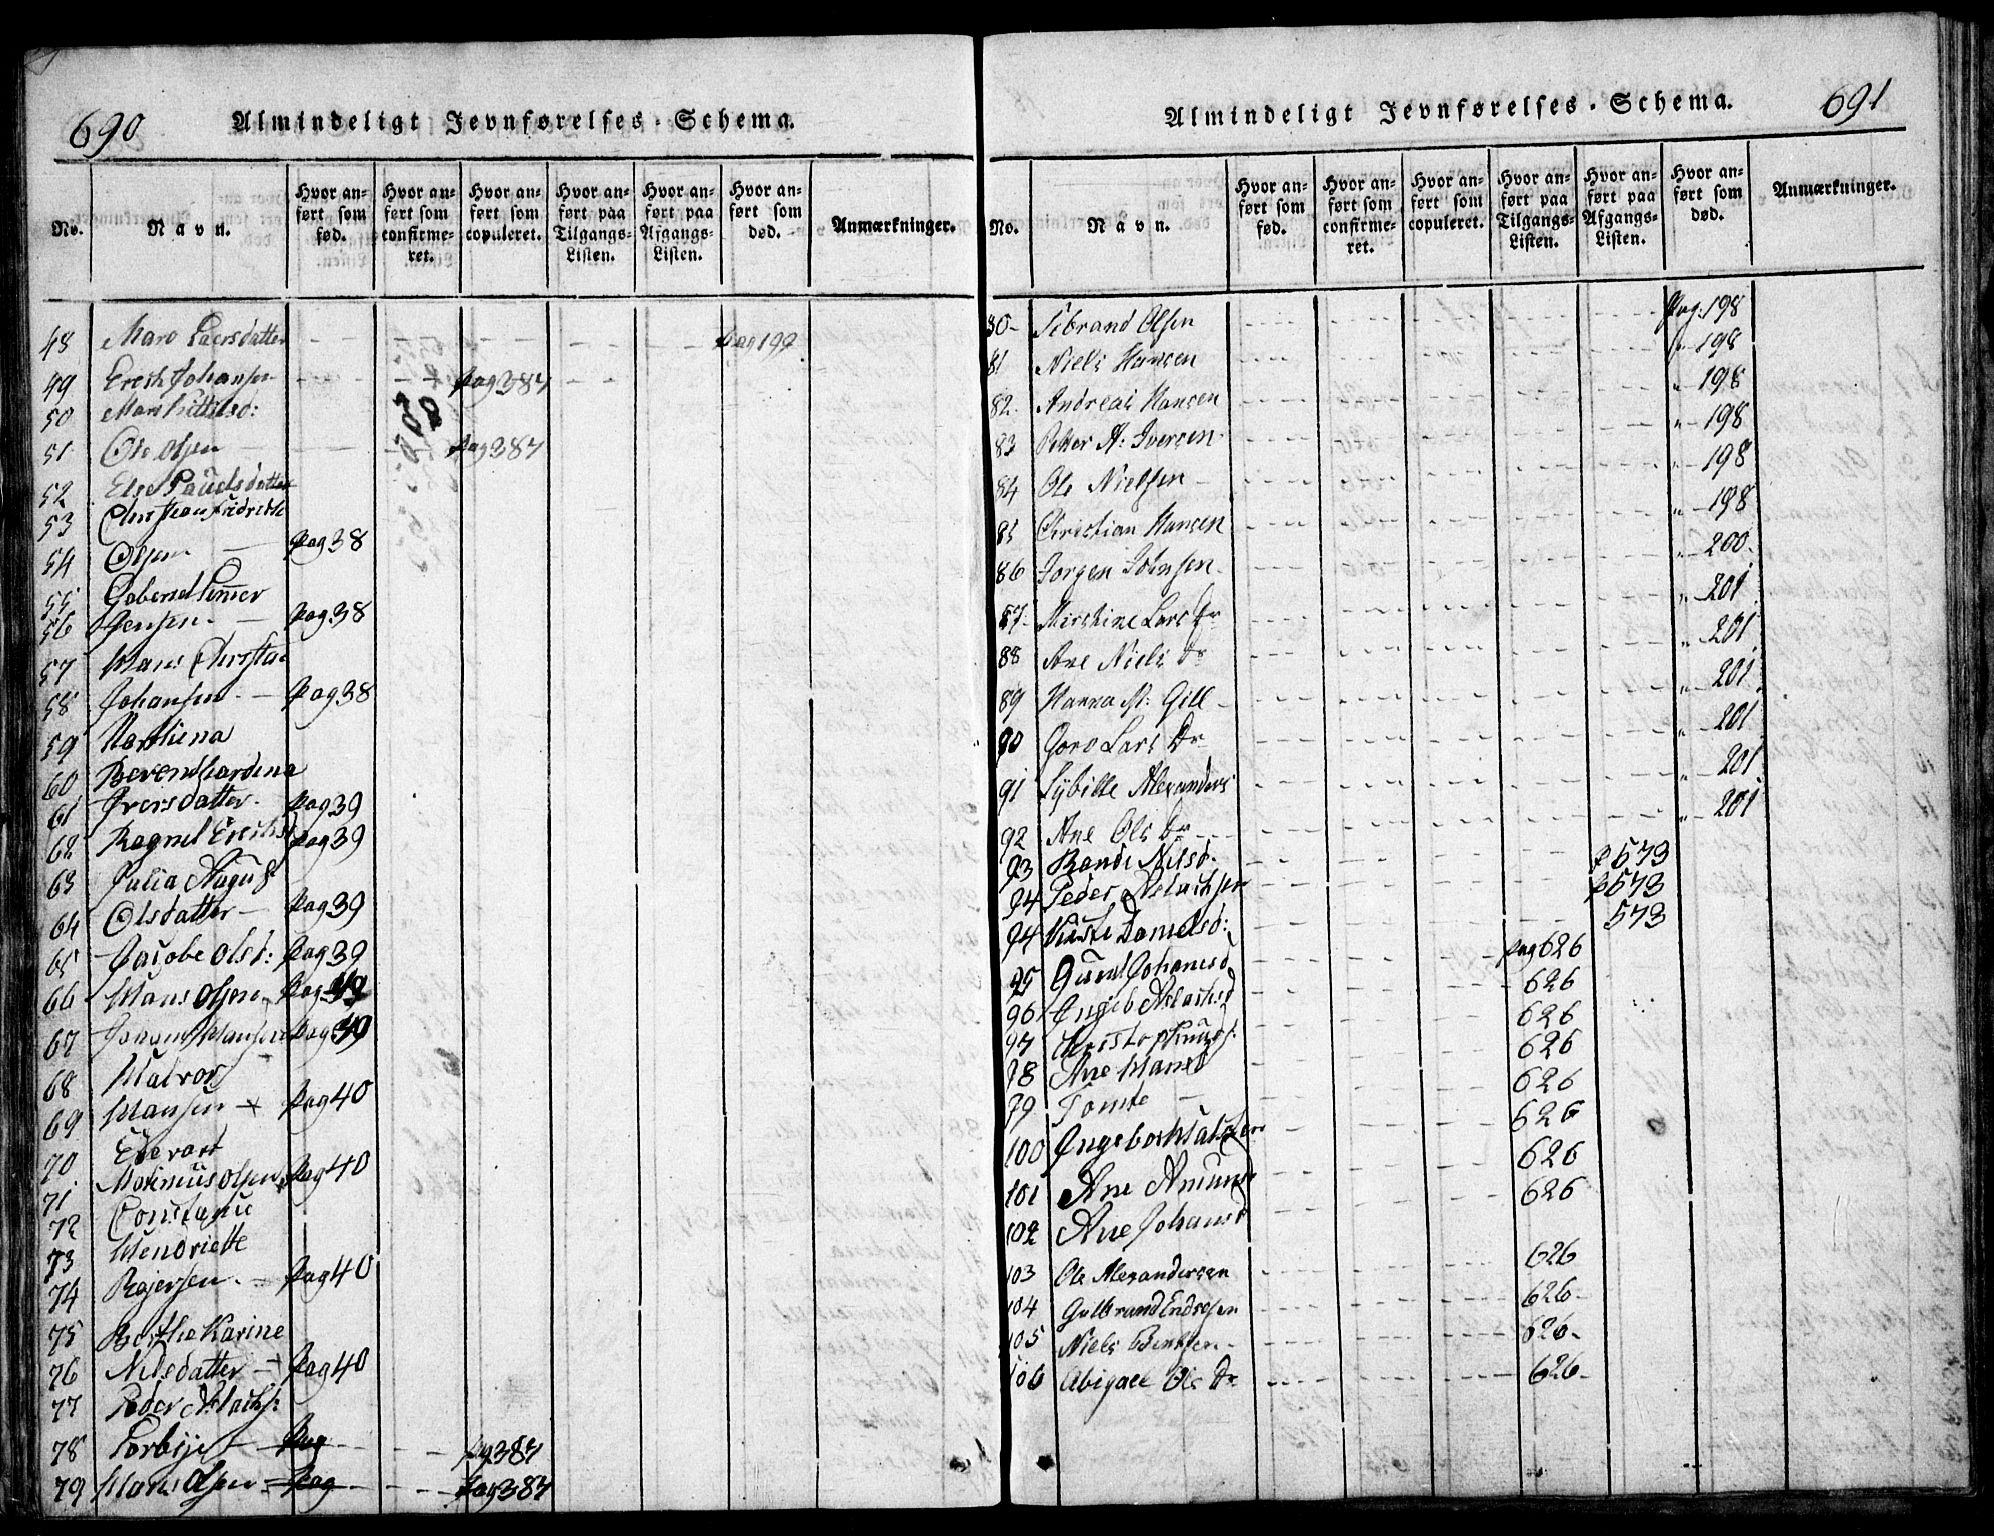 690
Almindeligt Jevnførelses-Schema.
No.
Navn.
Hvor anført som fød.
Hvor anført som confirmeret.
Hvor anført som copuleret.
Hvor anført paa Tilgangs-Listen.
Hvor anført paa Afgangs-Listen.
Hvor anført som død.
Anmærkninger.
48 Maro Laersdatter Pag199
49 Erich Johansen Pag387
50
51 Ole Olsen Pag387
52 Else Pauelsdatter
53
54 Olsen Pag38
55
56 Jensen Pag38
57 Hans Christian
58 Johansen Pag38
59 Karthiena
60 Berendhardina
61 Iversdatter Pag39
62 Ragnel Erichsd Pag39
63 Julia August
64 Olsdatter Pag39
65 Jacobe Olsd: Pag39
66 Hans Olsen
67 Johans Hansen
68 Halvor
69 Hansen Pag40
70 Edevart
71 Marinius Olsen Pag40
72 Constanse
73 Hendriette
74 Rejersen Pag40
75 Berthe Karine
76 Nilsdatter Pag40
77 Peder Aslachs:
78 Torbije Pag Pag387
79 Hans Olsen Pag Pag387
Almindeligt Jevnførelses-Schema.
691
No.
Navn.
Hvor anført som fød.
Hvor anført som confirmeret.
Hvor anført som copuleret.
Hvor anført paa Tilgangs-Listen.
Hvor anført paa Afgangs-Listen.
Hvor anført som død.
Anmærkninger.
80 Sebrand Olsen Pag. 198
81 Niels Hansen " 198
82 Andreas Hansen " 198
83 Petter A: Iversen " 198
84 Ole Nielsen " 198
85 Christian Hansen " 198
86 Jorgen Johnsen " 200
87 Kirstine Lars Dr " 201
88 Ane Niels Dr " 201
89 Hanna M: Gill " 201
90 Goro Lars Dr " 201
91 Sybille Alexanders " 201
92 Ane Ols Dr " 201
93 Rande Nilsd. P 573
94 Peder Aslachsen P 573
94 Kirsti Danielsd: 573
95 Gunil Johanesd Pag 626
96 Ingeb Aslachsd 626
97 626
98 Ane Hansd 626
99 Tomte 626
100 626
101 Ane Amunds 626
102 Ane Johansd 626
103 Ole Alexandersen 626
104 Gulbrand Endresen 626
105 Niels Bentsen 626
106 Abigael Ols Dr 626